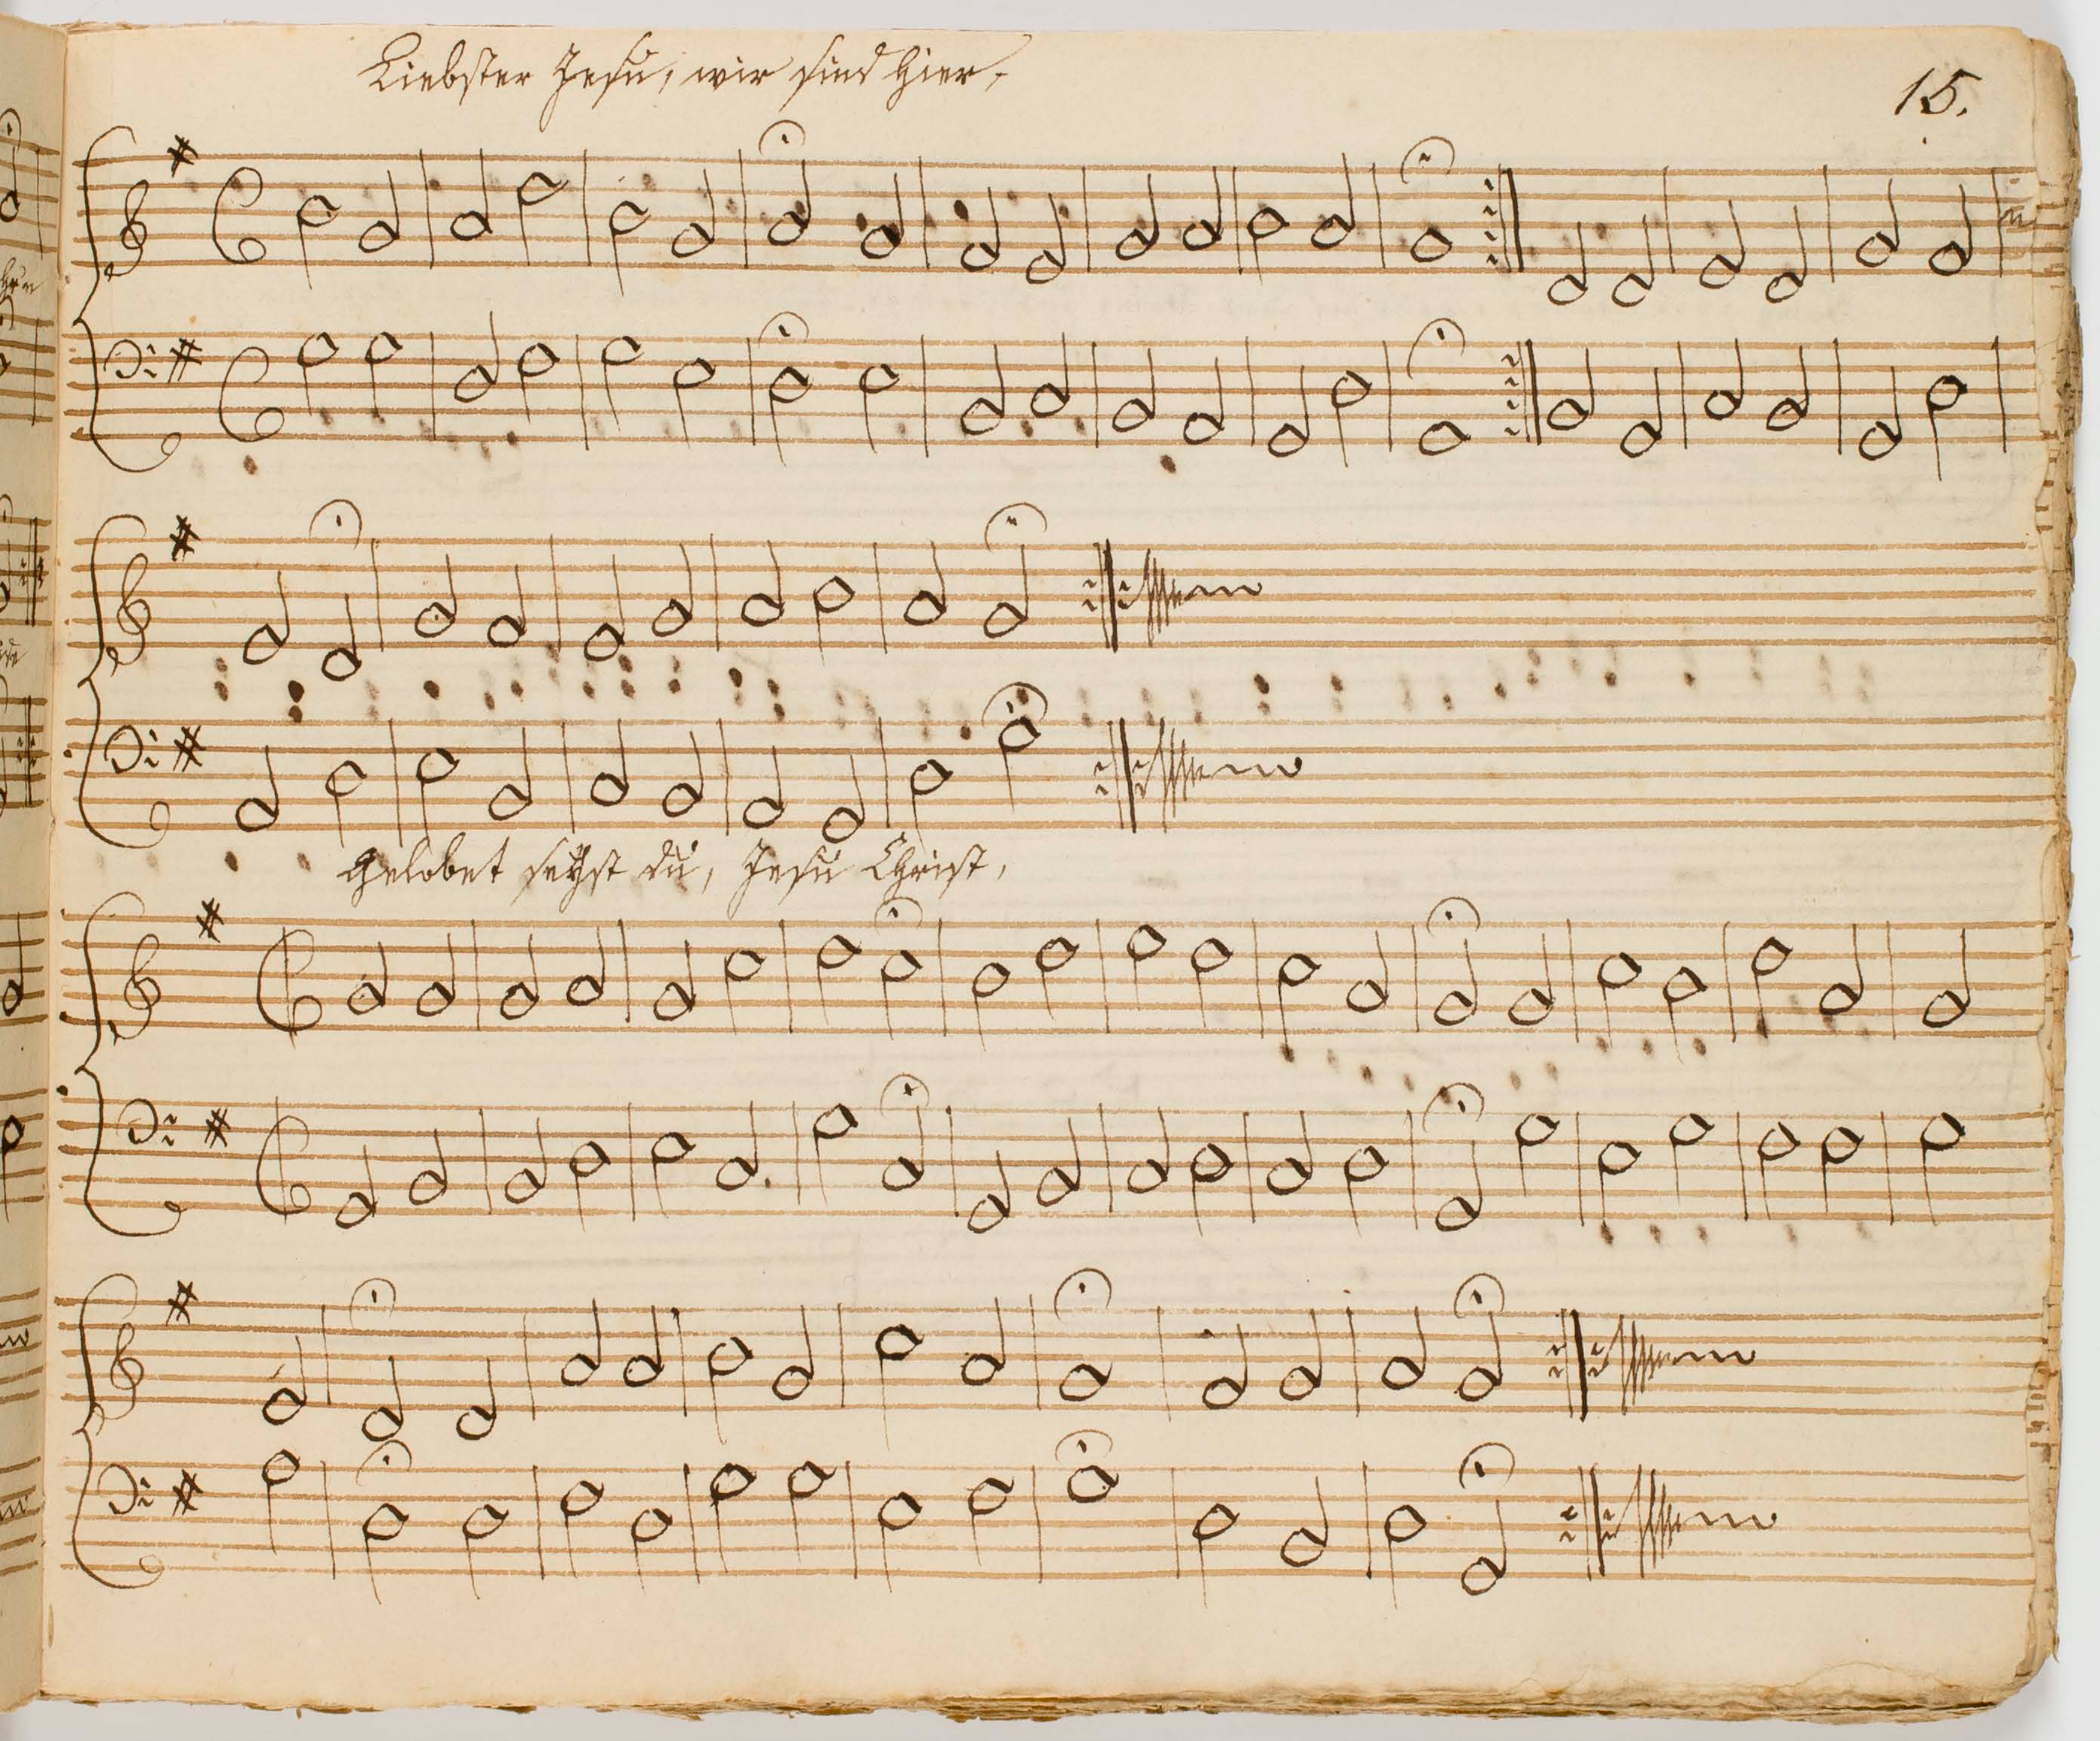 Liebster Jesu, wir sind hier,
15.
Gelobet seÿst du, Jesu Christ,